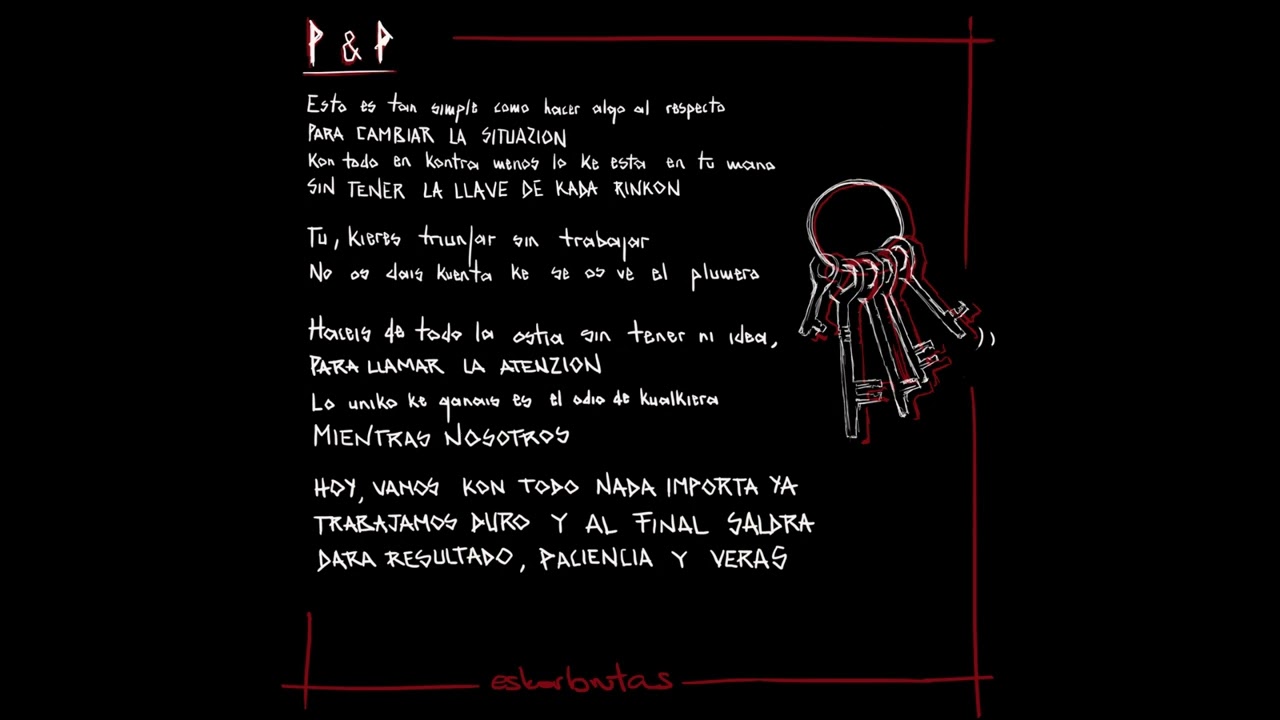 P & P
Esto es tan simple como hacer algo al respecto
PARA CAMBIAR LA SITUAZION
Kon todo en kontra menos lo ke esta en tu mano
SIN TENER LA LLAVE DE KADA RINKON
Tu, kieres triunfar sin trabajar
No os dais kuenta ke se os ve el plumero
Haceis de todo la ostia sin tener ni idea,
PARA LLAMAR LA ATENZION
Lo uniko ke ganais es el odio de kualkiera
MIENTRAS NOSOTROS
HOY, VAMOS KON TODO NADA IMPORTA YA
TRABAJAMOS DURO Y AL FINAL SALDRA
DARA RESULTADO, PACIENCIA Y VERAS
eskorbutas